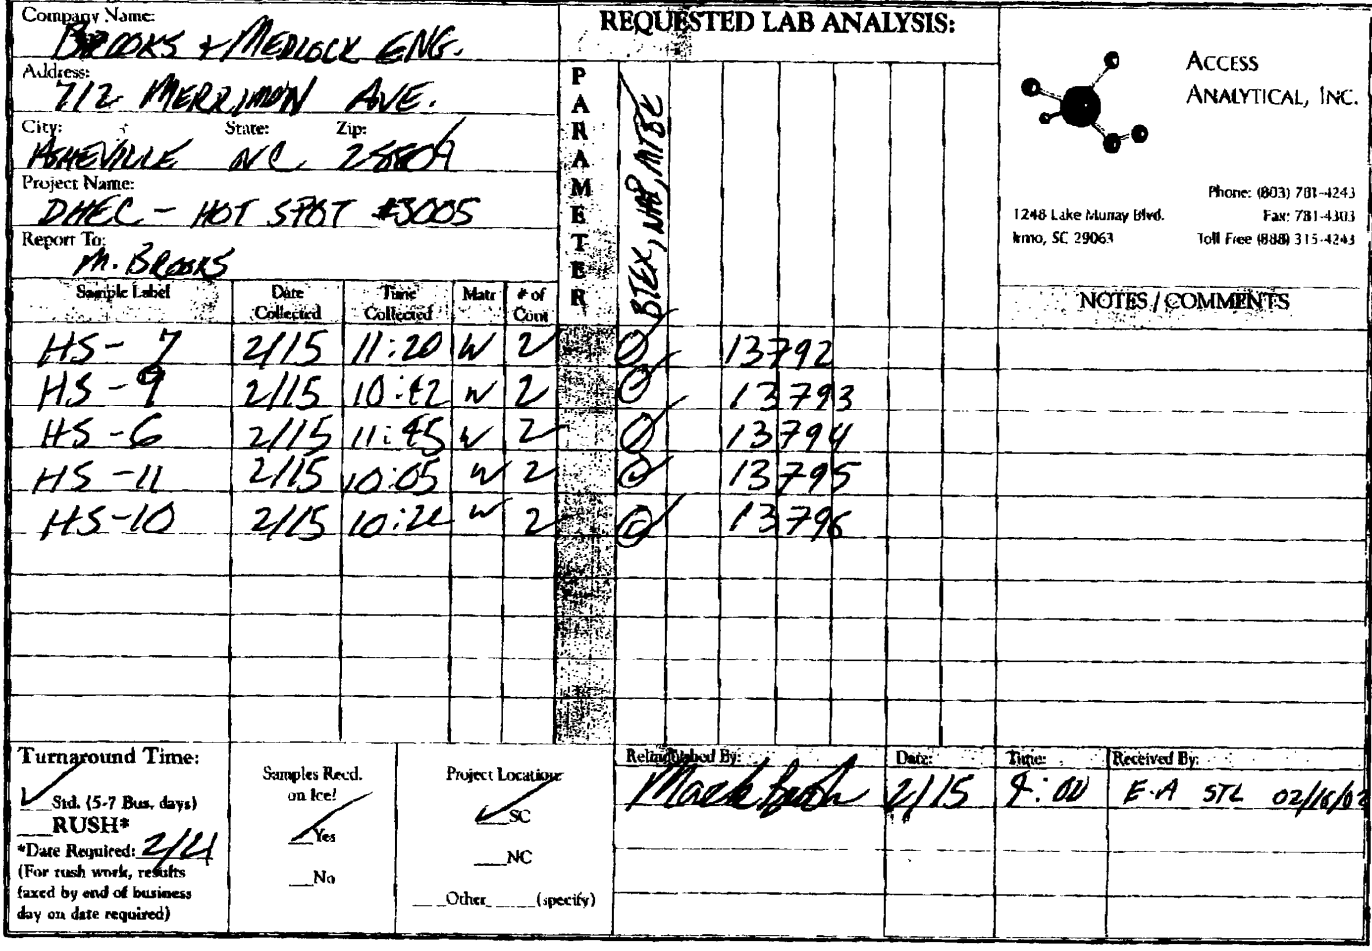 Company Name:
BROOKS + MEDLOCK ENG.
Address:
712 MERRIMON AVE.
City: State: Zip:
ASHEVILLE NC
Project Name:
DHEC - HOT SPOT #3005
Report To:
M. BROOKS
REQUESTED LAB ANALYSIS:
PARAMETER
BTEX, NAP, MTBE
ACCESS
ANALYTICAL, INC.
Phone: (803) 781-4243
1248 Lake Murray Blvd. Fax: 781-4303
Irmo, SC 29063 Toll Free (888) 315-4243
Sample Label Date Collected Time Collected Matr # of Cont NOTES / COMMENTS
HS-7 2/15 11:20 W 2 13792
HS-9 2/15 10:42 W 2 13793
HS-6 2/15 11:45 W 2 13794
HS-11 2/15 10:05 W 2 13795
HS-10 2/15 W 2 13796
Turnaround Time:
✓ Std. (5-7 Bus. days)
___RUSH*
*Date Required: 2/21
(For rush work, results
faxed by end of business
day on date required)
Samples Recd.
on Ice?
✓ Yes
___No
Project Location:
✓ SC
___NC
___Other_____(specify)
Relinquished By: Date: Time: Received By:
Mark 2/15 E.A STL 02/16/02